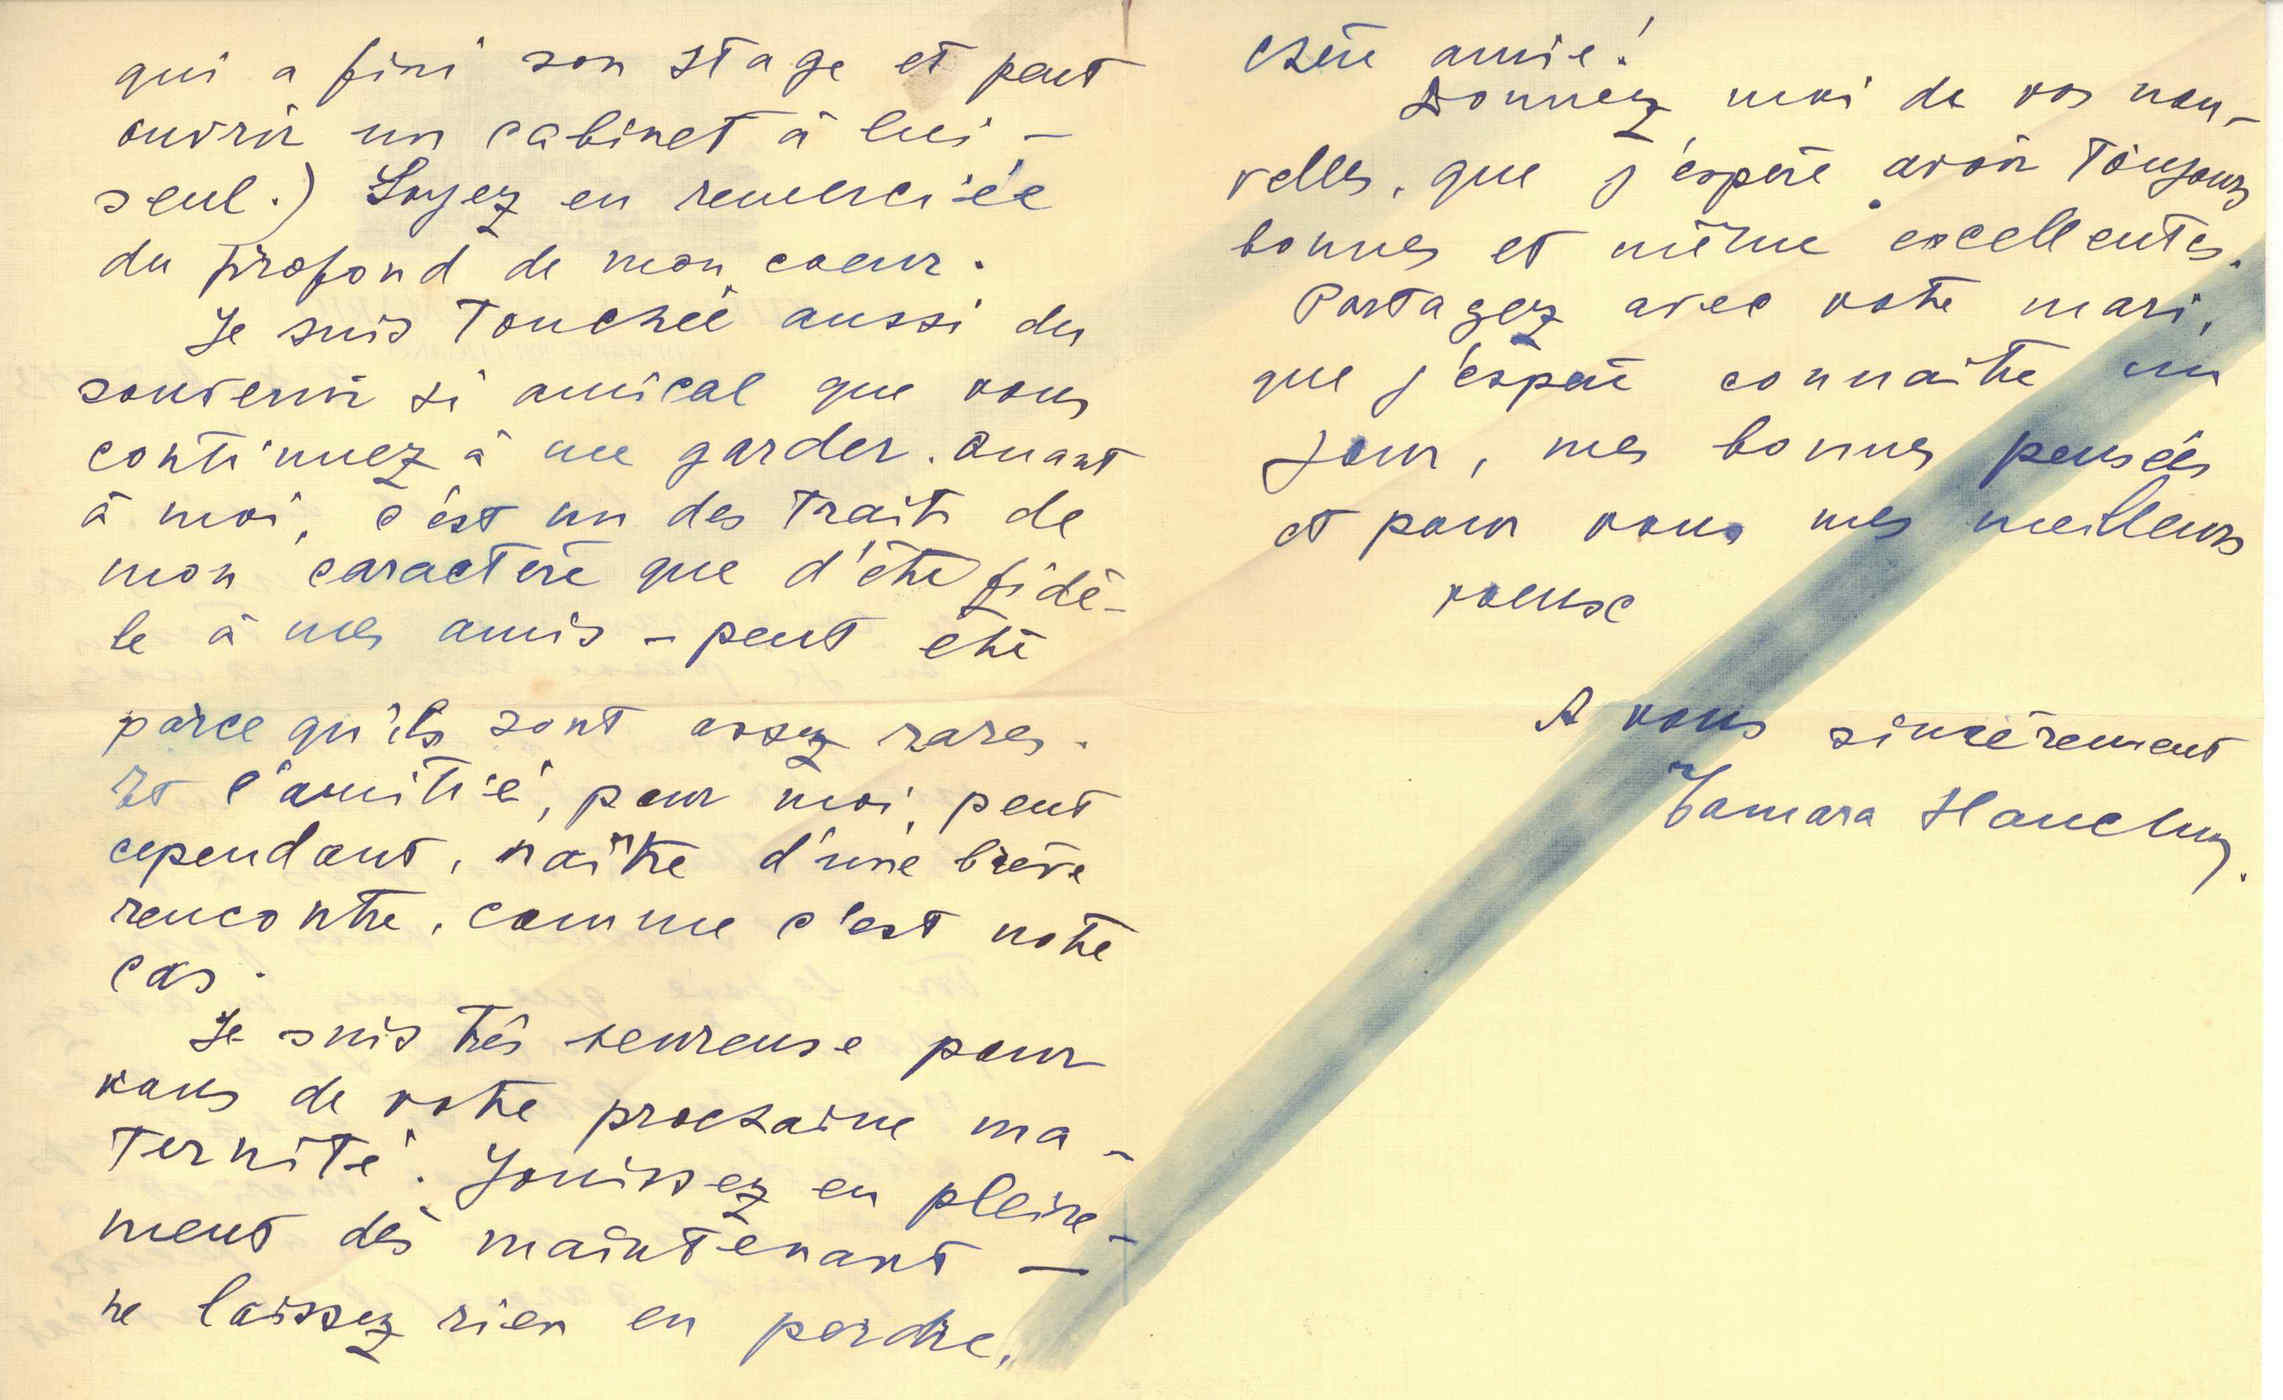 qui a fini son stage et peut
ouvrir un cabinet à lui –
seul.) Soyez en remerciée
du profond de mon coeur.
Je suis touchée aussi du
souvenir si amical que vous
continuez à me garder. Quant
à moi, c'est un des traits de
mon caractère que d'être fidè-
le à mes amis – peut être
parce qu'ils sont assez rares.
Et l'amitié, pour moi, peut
cependant, naître d'une brève
rencontre, comme c'est notre
cas.
Je suis très heureuse pour
vous de votre prochaine ma-
ternité. Jouissez en pleine-
ment dès maintenant –
ne laissez rien en perdre,
chère amie!
Donnez moi de vos nou-
velles, que j'espère avoir toujours
bonnes et même excellentes.
Partagez avec votre mari,
que j'espère connaître un
jour, mes bonnes pensées
et pour vous mes meilleurs
voeux
A vous sincèrement
Tamara